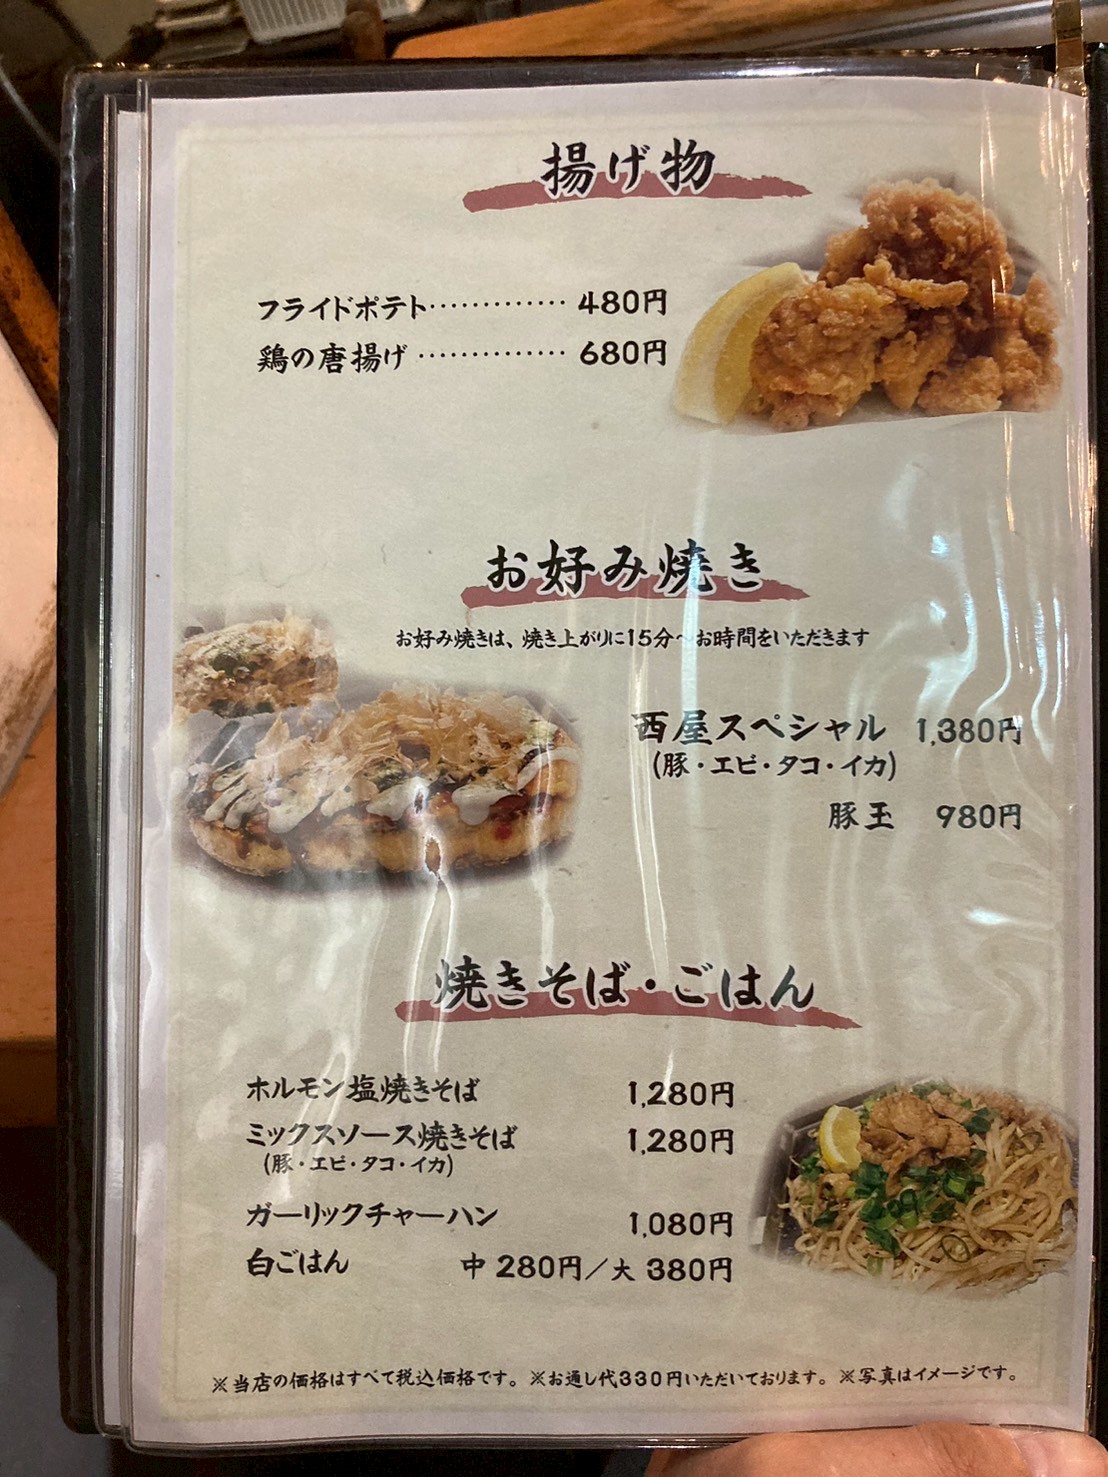 揚げ物
フライドポテト・・・・・・・・・・・・・ 480円
鶏の唐揚げ・・・・・・・・・・・・・・ 680円
お好み焼き
お好み焼きは、焼き上がりに15分〜お時間をいただきます
西屋スペシャル 1,380円
(豚・エビ・タコ・イカ)
豚玉 980円
焼きそば・ごはん
ホルモン塩焼きそば 1,280円
ミックスソース焼きそば 1,280円
(豚・エビ・タコ・イカ)
ガーリックチャーハン 1,080円
白ごはん 中 280円／大 380円
※当店の価格はすべて税込価格です。※お通し代330円いただいております。※写真はイメージです。